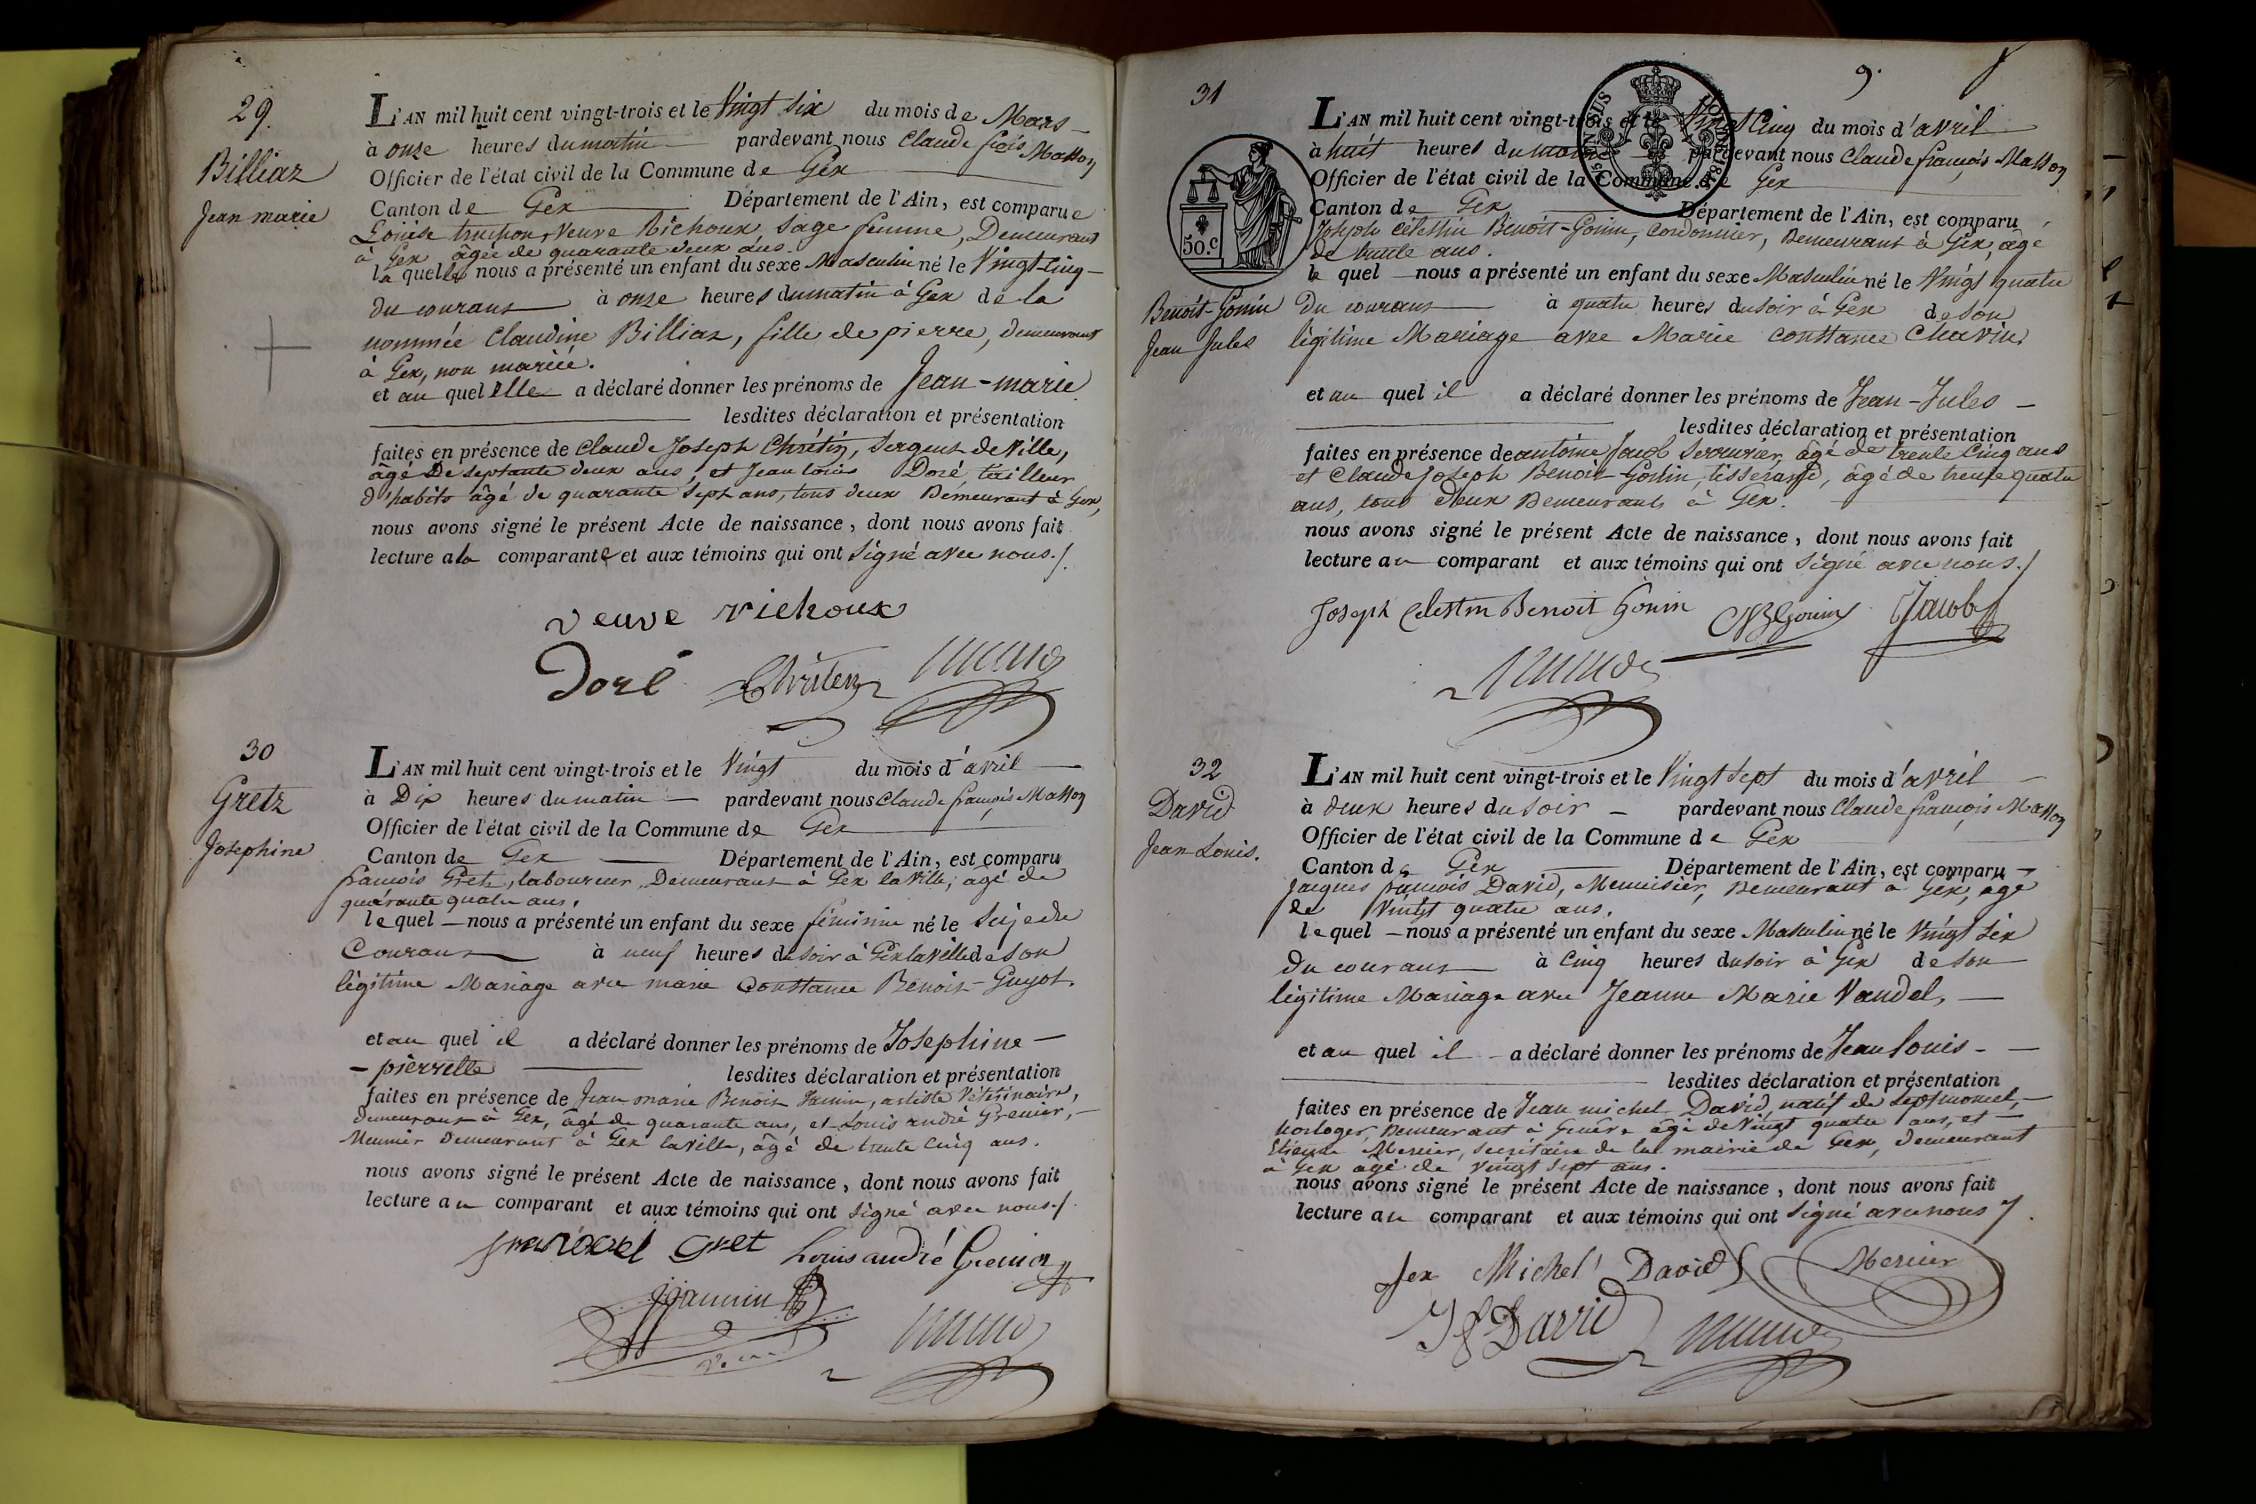 29.
Billiaz
Jean marie
L'AN mil huit cent vingt-trois et le Vingt Six du mois de Mars
à onze heures du matin pardevant nous Claude frçois Masson
Officier de l'état civil de la Commune de Gex
Canton de Gex Département de l'Ain, est comparue
Louise truchon, Veuve Richoux Sage femme, Demeurant
à Gex âgée de quarante deux ans.
la quelle nous a présenté un enfant du sexe Masculin né le Vingt-cinq
du courant à onze heures du matin à Gex de la
nommée Claudine Billiaz, fille de pierre, demeurant
à Gex, non mariée.
et au quel elle a déclaré donner les prénoms de Jean-marie
lesdites déclaration et présentation
faites en présence de Claude Joseph Chrétin, Sergent de Ville,
âgé De Septante deux ans, et Jean louis Doré, tailleur
d'habits âgé de quarante Sept ans, tous deux Demeurant à Gex,
nous avons signé le présent Acte de naissance, dont nous avons fait
lecture a la comparante et aux témoins qui ont Signé avec nous./.
veuve richoux
Doré
30
Gretz
Josephine
L'AN mil huit cent vingt-trois et le Vingt du mois d'avril
à Dix heures du matin pardevant nous Claude françois Masson
Officier de l'état civil de la Commune de Gex
Canton de Gex Département de l'Ain, est comparu
françois Gretz, laboureur, Demeurant à Gex la ville, âgé de
quarante quatre ans.
le quel nous a présenté un enfant du sexe féminin né le Seize du
Courant à neuf heures du Soir à Gex la ville de Son
légitime Mariage avec marie Constance Benoit-Guyot.
et au quel il a déclaré donner les prénoms de Josephine
- pierrette lesdites déclaration et présentation
faites en présence de Jean marie Benoit Jamin, artiste Vétérinaire,
Demeurant à Gex, âgé de quarante ans, et Louis andré Grenier,
Meunier Demeurant à Gex la ville, âgé de trente cinq ans.
nous avons signé le présent Acte de naissance, dont nous avons fait
lecture au comparant et aux témoins qui ont Signé avec nous./.
Gret Louis andré Grenier
31
9.
50.c
Benoit-Gonin
Jean Jules
L'AN mil huit cent vingt-trois et le Vingt Cinq du mois d'avril
à huit heures du matin pardevant nous Claude françois Masson
Officier de l'état civil de la Commune de Gex
Canton de Gex Département de l'Ain, est comparu
Joseph Célestin Benoit-Gonin, Cordonnier, Demeurant à Gex, âgé
de trente ans.
le quel nous a présenté un enfant du sexe Masculin né le Vingt quatre
Du courant à quatre heures du soir à Gex de Son
légitime Mariage avec Marie Constance Chavin,
et au quel il a déclaré donner les prénoms de Jean-Jules
lesdites déclaration et présentation
faites en présence de antoine Jacob Serrurier, âgé de trente cinq ans
et Claude Joseph Benoit-Gonin, tisserand, âgé de trente quatre
ans, tous deux Demeurants à Gex.
nous avons signé le présent Acte de naissance, dont nous avons fait
lecture au comparant et aux témoins qui ont Signé avec nous./
Joseph Celestin Benoit Gonin Jacob
32
David
Jean Louis.
L'AN mil huit cent vingt-trois et le Vingt Sept du mois d'avril
à deux heures du Soir pardevant nous Claude françois Masson
Officier de l'état civil de la Commune de Gex
Canton de Gex Département de l'Ain, est comparu
Jacques françois David, Menuisier, Demeurant à Gex, âgé
de Vingt quatre ans.
le quel nous a présenté un enfant du sexe Masculin né le Vingt Six
du courant à Cinq heures du Soir à Gex de Son
légitime Mariage avec Jeanne Marie Vandel,
et au quel il a déclaré donner les prénoms de Jean Louis
lesdites déclaration et présentation
faites en présence de Jean michel David, natif de Septmoncel,
horloger, Demeurant à Genève âgé de Vingt quatre ans, et
Etienne Mercier, Secrétaire de la mairie de Gex, demeurant
à Gex âgé de vingt Sept ans.
nous avons signé le présent Acte de naissance, dont nous avons fait
lecture au comparant et aux témoins qui ont Signé avec nous
Michel David Mercier
David